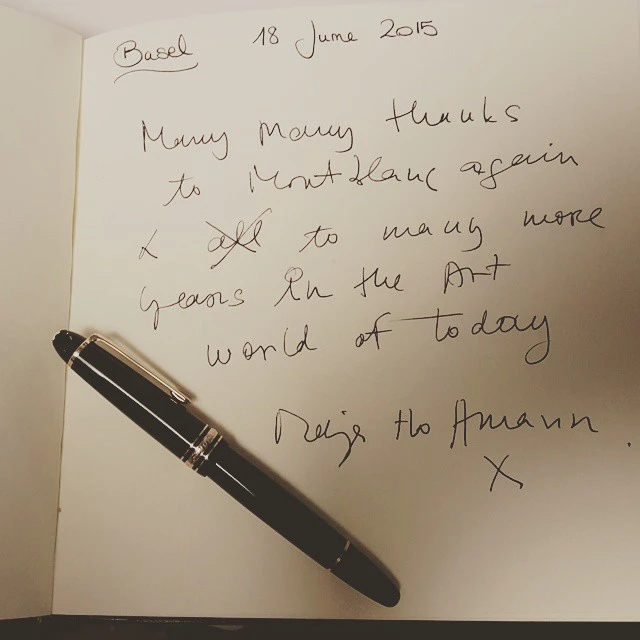 Basel 18 June 2015
Many many thanks
to Montblanc again
& to many more
years in the Art
world of today
Amann
X